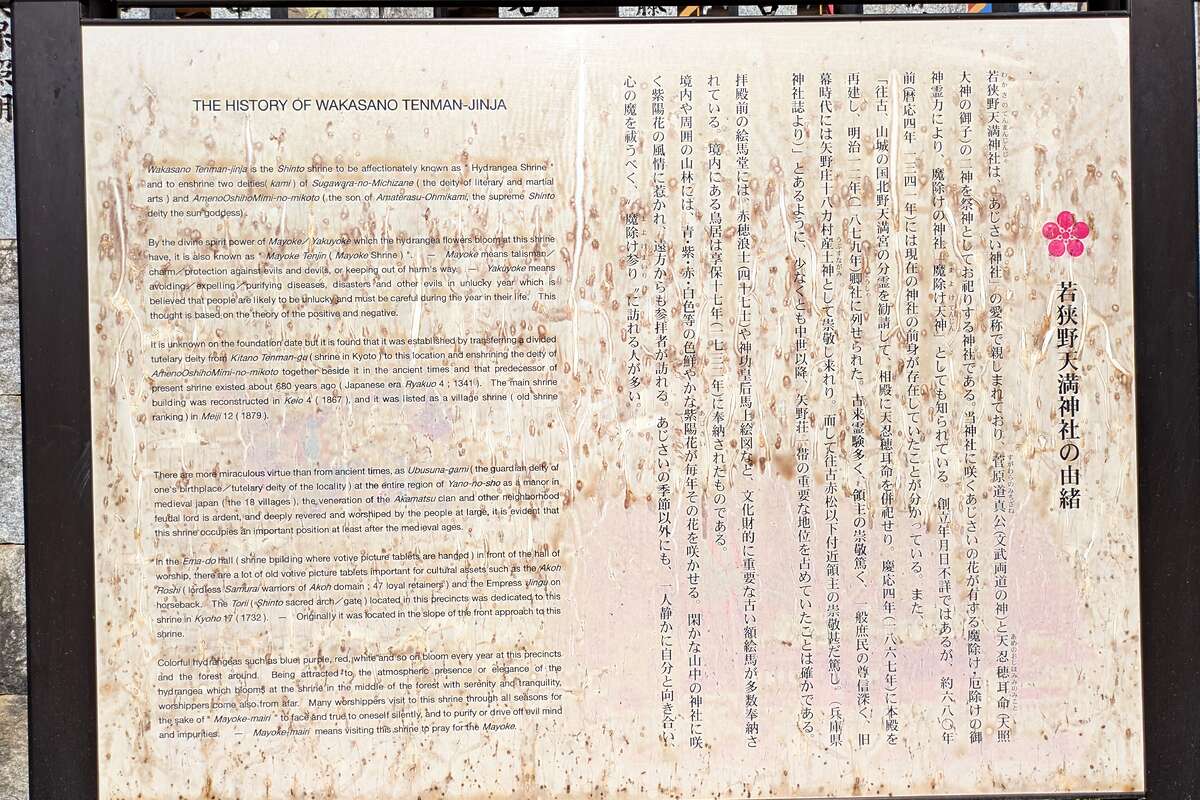 THE HISTORY OF WAKASANO TENMAN-JINJA
Wakasano Tenman-jinja is the Shinto shrine to be affectionately known as " Hydrangea Shrine "
and to enshrine two deities( kami ) of Sugawara-no-Michizane ( the deity of literary and martial
arts ) and AmenoOshihoMimi-no-mikoto ( the son of Amaterasu-Ohmikami, the supreme Shinto
deity the sun goddess) .
By the divine spirit power of Mayoke／Yakuyoke which the hydrangea flowers bloom at this shrine
have, it is also known as " Mayoke Tenjin ( Mayoke Shrine ) ". — Mayoke means talisman／
charm／protection against evils and devils, or keeping out of harm's way. — Yakuyoke means
avoiding／expelling／purifying diseases, disasters and other evils in unlucky year which is
believed that people are likely to be unlucky and must be careful during the year in their life. This
thought is based on the theory of the positive and negative.
It is unknown on the foundation date but it is found that it was established by transferring a divided
tutelary deity from Kitano Tenman-gu ( shrine in Kyoto ) to this location and enshrining the deity of
AmenoOshihoMimi-no-mikoto together beside it in the ancient times and that predecessor of
present shrine existed about 680 years ago ( Japanese era Ryakuo 4 ; 1341 ). The main shrine
building was reconstructed in Keio 4 ( 1867 ), and it was listed as a village shrine ( old shrine
ranking ) in Meiji 12 ( 1879 ) .
There are more miraculous virtue than from ancient times, as Ubusuna-gami ( the guardian deity of
one's birthplace／tutelary deity of the locality ) at the entire region of Yano-no-sho as a manor in
medieval japan ( the 18 villages ), the veneration of the Akamatsu clan and other neighborhood
feudal lord is ardent, and deeply revered and worshiped by the people at large, it is evident that
this shrine occupies an important position at least after the medieval ages.
In the Ema-do Hall ( shrine building where votive picture tablets are handed ) in front of the hall of
worship, there are a lot of old votive picture tablets important for cultural assets such as the Akoh
Roshi ( lordless Samurai warriors of Akoh domain ; 47 loyal retainers ) and the Empress Jingu on
horseback. The Torii ( Shinto sacred arch／gate ) located in this precincts was dedicated to this
shrine in Kyoho 17 ( 1732 ) . — Originally it was located in the slope of the front approach to this
shrine.
Colorful hydrangeas such as blue, purple, red, white and so on bloom every year at this precincts
and the forest around. Being attracted to the atmospheric presence or elegance of the
hydrangea which blooms at the shrine in the middle of the forest with serenity and tranquility,
worshippers come also from afar. Many worshippers visit to this shrine through all seasons for
the sake of " Mayoke-mairi " to face and true to oneself silently, and to purify or drive off evil mind
and impurities. — Mayoke-mairi means visiting this shrine to pray for the Mayoke.
若狭野天満神社の由緒
若狭野天満神社は、「あじさい神社」の愛称で親しまれており、菅原道真公(文武両道の神)と天忍穂耳命(天照
大神の御子)の二神を祭神としてお祀りする神社である。当神社に咲くあじさいの花が有する魔除け・厄除けの御
神霊力により、魔除けの神社「魔除け天神」としても知られている。創立年月日不詳ではあるが、約六八〇年
前(暦応四年・一三四一年)には現在の神社の前身が存在していたことが分かっている。また、
「往古、山城の国北野天満宮の分霊を勧請して、相殿に天忍穂耳命を併祀せり。慶応四年(一八六七年)に本殿を
再建し、明治一二年(一八七九年)郷社に列せられた。古来霊験多く、領主の崇敬篤く、一般庶民の尊信深く、旧
幕時代には矢野庄十八カ村産土神として崇敬し来れり。而して往古赤松以下付近領主の崇敬甚だ篤し。(兵庫県
神社誌より)」とあるように、少なくとも中世以降、矢野荘一帯の重要な地位を占めていたことは確かである。
拝殿前の絵馬堂には、赤穂浪士(四十七士)や神功皇后馬上絵図など、文化財的に重要な古い額絵馬が多数奉納さ
れている。境内にある鳥居は享保十七年(一七三二年)に奉納されたものである。
境内や周囲の山林には、青・紫・赤・白色等の色鮮やかな紫陽花が毎年その花を咲かせる。閑かな山中の神社に咲
く紫陽花の風情に惹かれ、遠方からも参拝者が訪れる。あじさいの季節以外にも、一人静かに自分と向き合い、
心の魔を祓うべく、〝魔除け参り〟に訪れる人が多い。